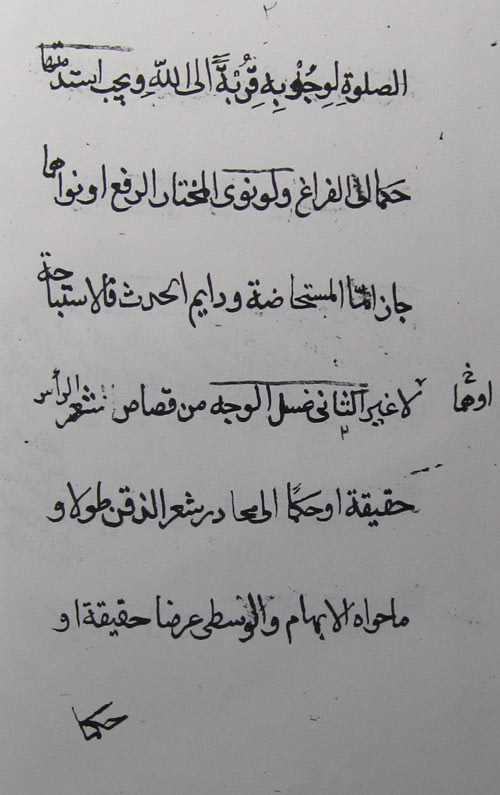 ٢
الصلوة لوجوبه قربة الى الله ويجب استدامتها
حكما الى الفراغ ولو نوى المختار الرفع او نواهما
جاز امّا المستحاضة ودايم الحدث فالاستباحة
او هما
لا غير الثانى غسل الوجه من قصاص شعر الرأس
٢
حقيقة او حكمًا الى محادر شعر الذقن طولا و
ما حواه الابهام والوسطى عرضا حقيقة او
حكما